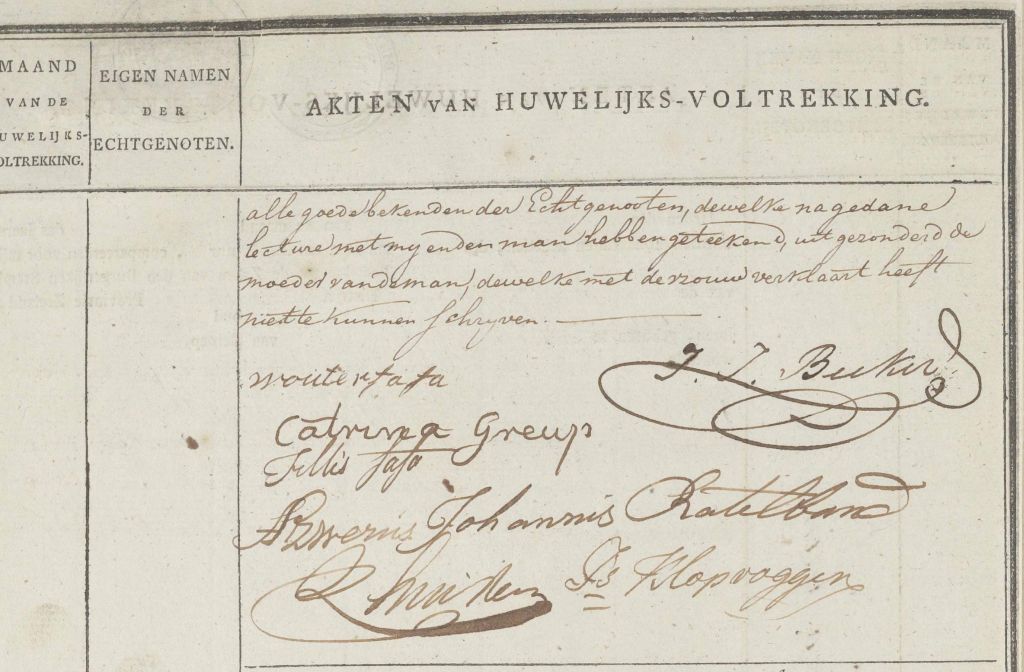 MAAND
VAN DE
UWELIJKS-
OLTREKKING.
EIGEN NAMEN
DER
ECHTGENOTEN.
AKTEN VAN HUWELIJKS-VOLTREKKING.
alle goede bekenden der Echtgenooten, dewelke na gedane
lecture met my en den man hebben geteekend, uit gezonderd de
moeder van de man, dewelke met de vrouw verklaart heeft
niet te kunnen schryven.
wouter fafa
J. J. Beeker
Catrina Greup
fafa
Johannis Ratelband
Js Klopvoggen